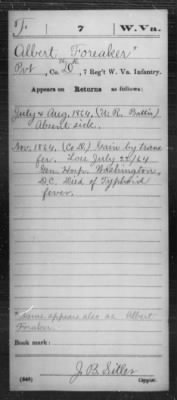 F. 7 W. Va.
Albert Foreaker*
Pvt, Co. D, 7 Reg't W. Va. Infantry.
Appears on
Returns as follows:
July & Aug. 1864, (M. R. Battin)
Absent sick.
Nov. 1864. (Co D) Gain by trans
fer. Loss July 22/64
Gen Hosp. Washington,
D.C. Died of Typhoid
fever.
* Name appears also as Albert
Foraker.
Book mark:
J. B. Sitler
(546) Copyist.